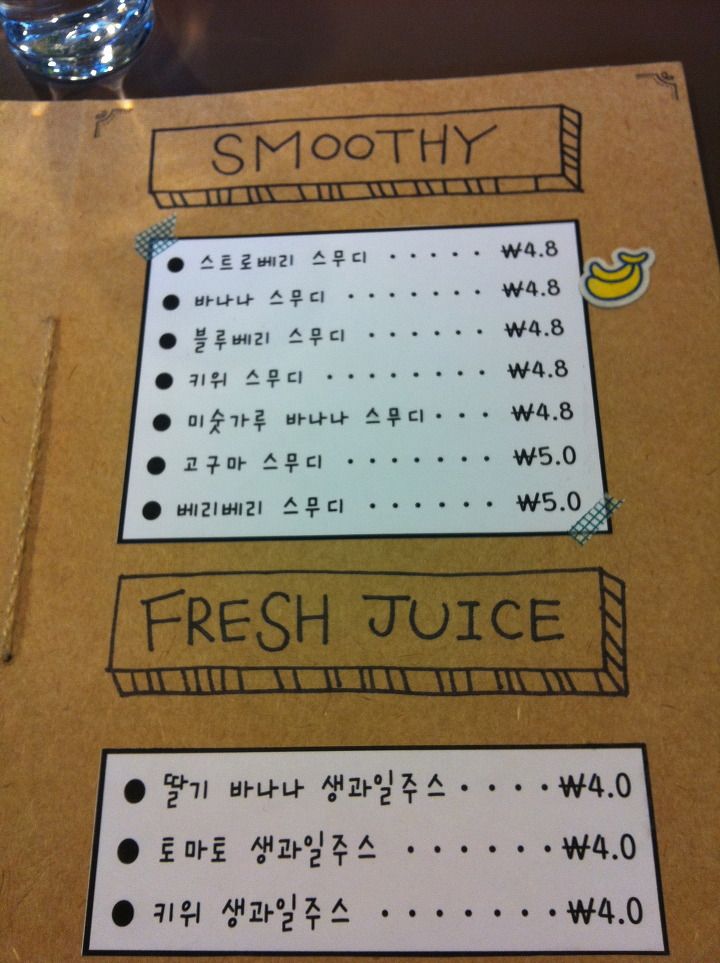 SMOOTHY
● 스트로베리 스무디 ····· ₩4.8
● 바나나 스무디 ······· ₩4.8
● 블루베리 스무디 ······ ₩4.8
● 키위 스무디 ········ ₩4.8
● 미숫가루 바나나 스무디 ··· ₩4.8
● 고구마 스무디 ······· ₩5.0
● 베리베리 스무디 ······ ₩5.0
FRESH JUICE
● 딸기 바나나 생과일주스 ···· ₩4.0
● 토마토 생과일주스 ······ ₩4.0
● 키위 생과일주스 ······· ₩4.0